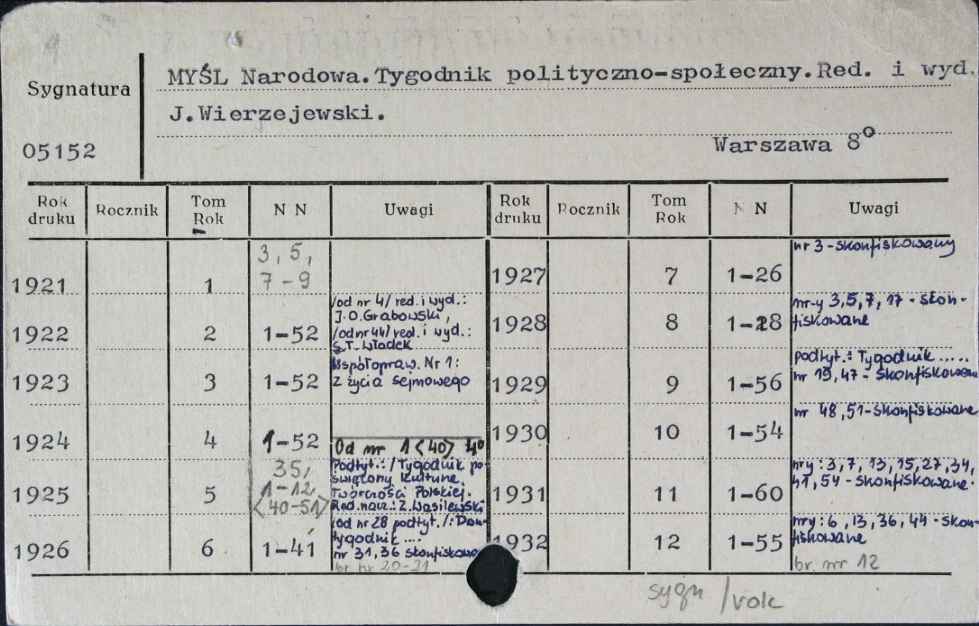 Sygnatura
05152
MYŚL Narodowa.Tygodnik polityczno-społeczny.Red. i wyd.
J.Wierzejewski.
Warszawa 8°
Rok druku Rocznik Tom Rok N N Uwagi
1921 1 3, 5, 7-9
1922 2 1-52 /od nr 4/ red. i wyd.:
J.O.Grabowski,
/od nr 44/ red. i wyd.:
S.T. Władek
1923 3 1-52 Współopraw. Nr 1:
Z życia sejmowego
1924 4 1-52 Od nr 1 <40> 4°
1925 5 35, 1-12, <40-51> Podtyt.: /Tygodnik po
święcony Kulturze,
Twórczości Polskiej.
Red. nacz.: Z.Wasilewski
1926 6 1-41 /od nr 28 podtyt./: Dwu-
tygodnik ....
nr 31,36 skonfiskowa
br. nr 20-21
Rok druku Rocznik Tom Rok N N Uwagi
1927 7 1-26 nr 3 - skonfiskowany
1928 8 1-28 nr-y 3,5,7,17 - skon-
fiskowane
1929 9 1-56 podtyt.: Tygodnik .....
nr 19,47 - skonfiskowane
1930 10 1-54 nr 48,51 - skonfiskowane
1931 11 1-60 nry: 3,7,13,15,27,34,
41,54 - skonfiskowane.
1932 12 1-55 nry: 6,13,36,44 - skon-
fiskowane
br. nr 12
sygn /volc